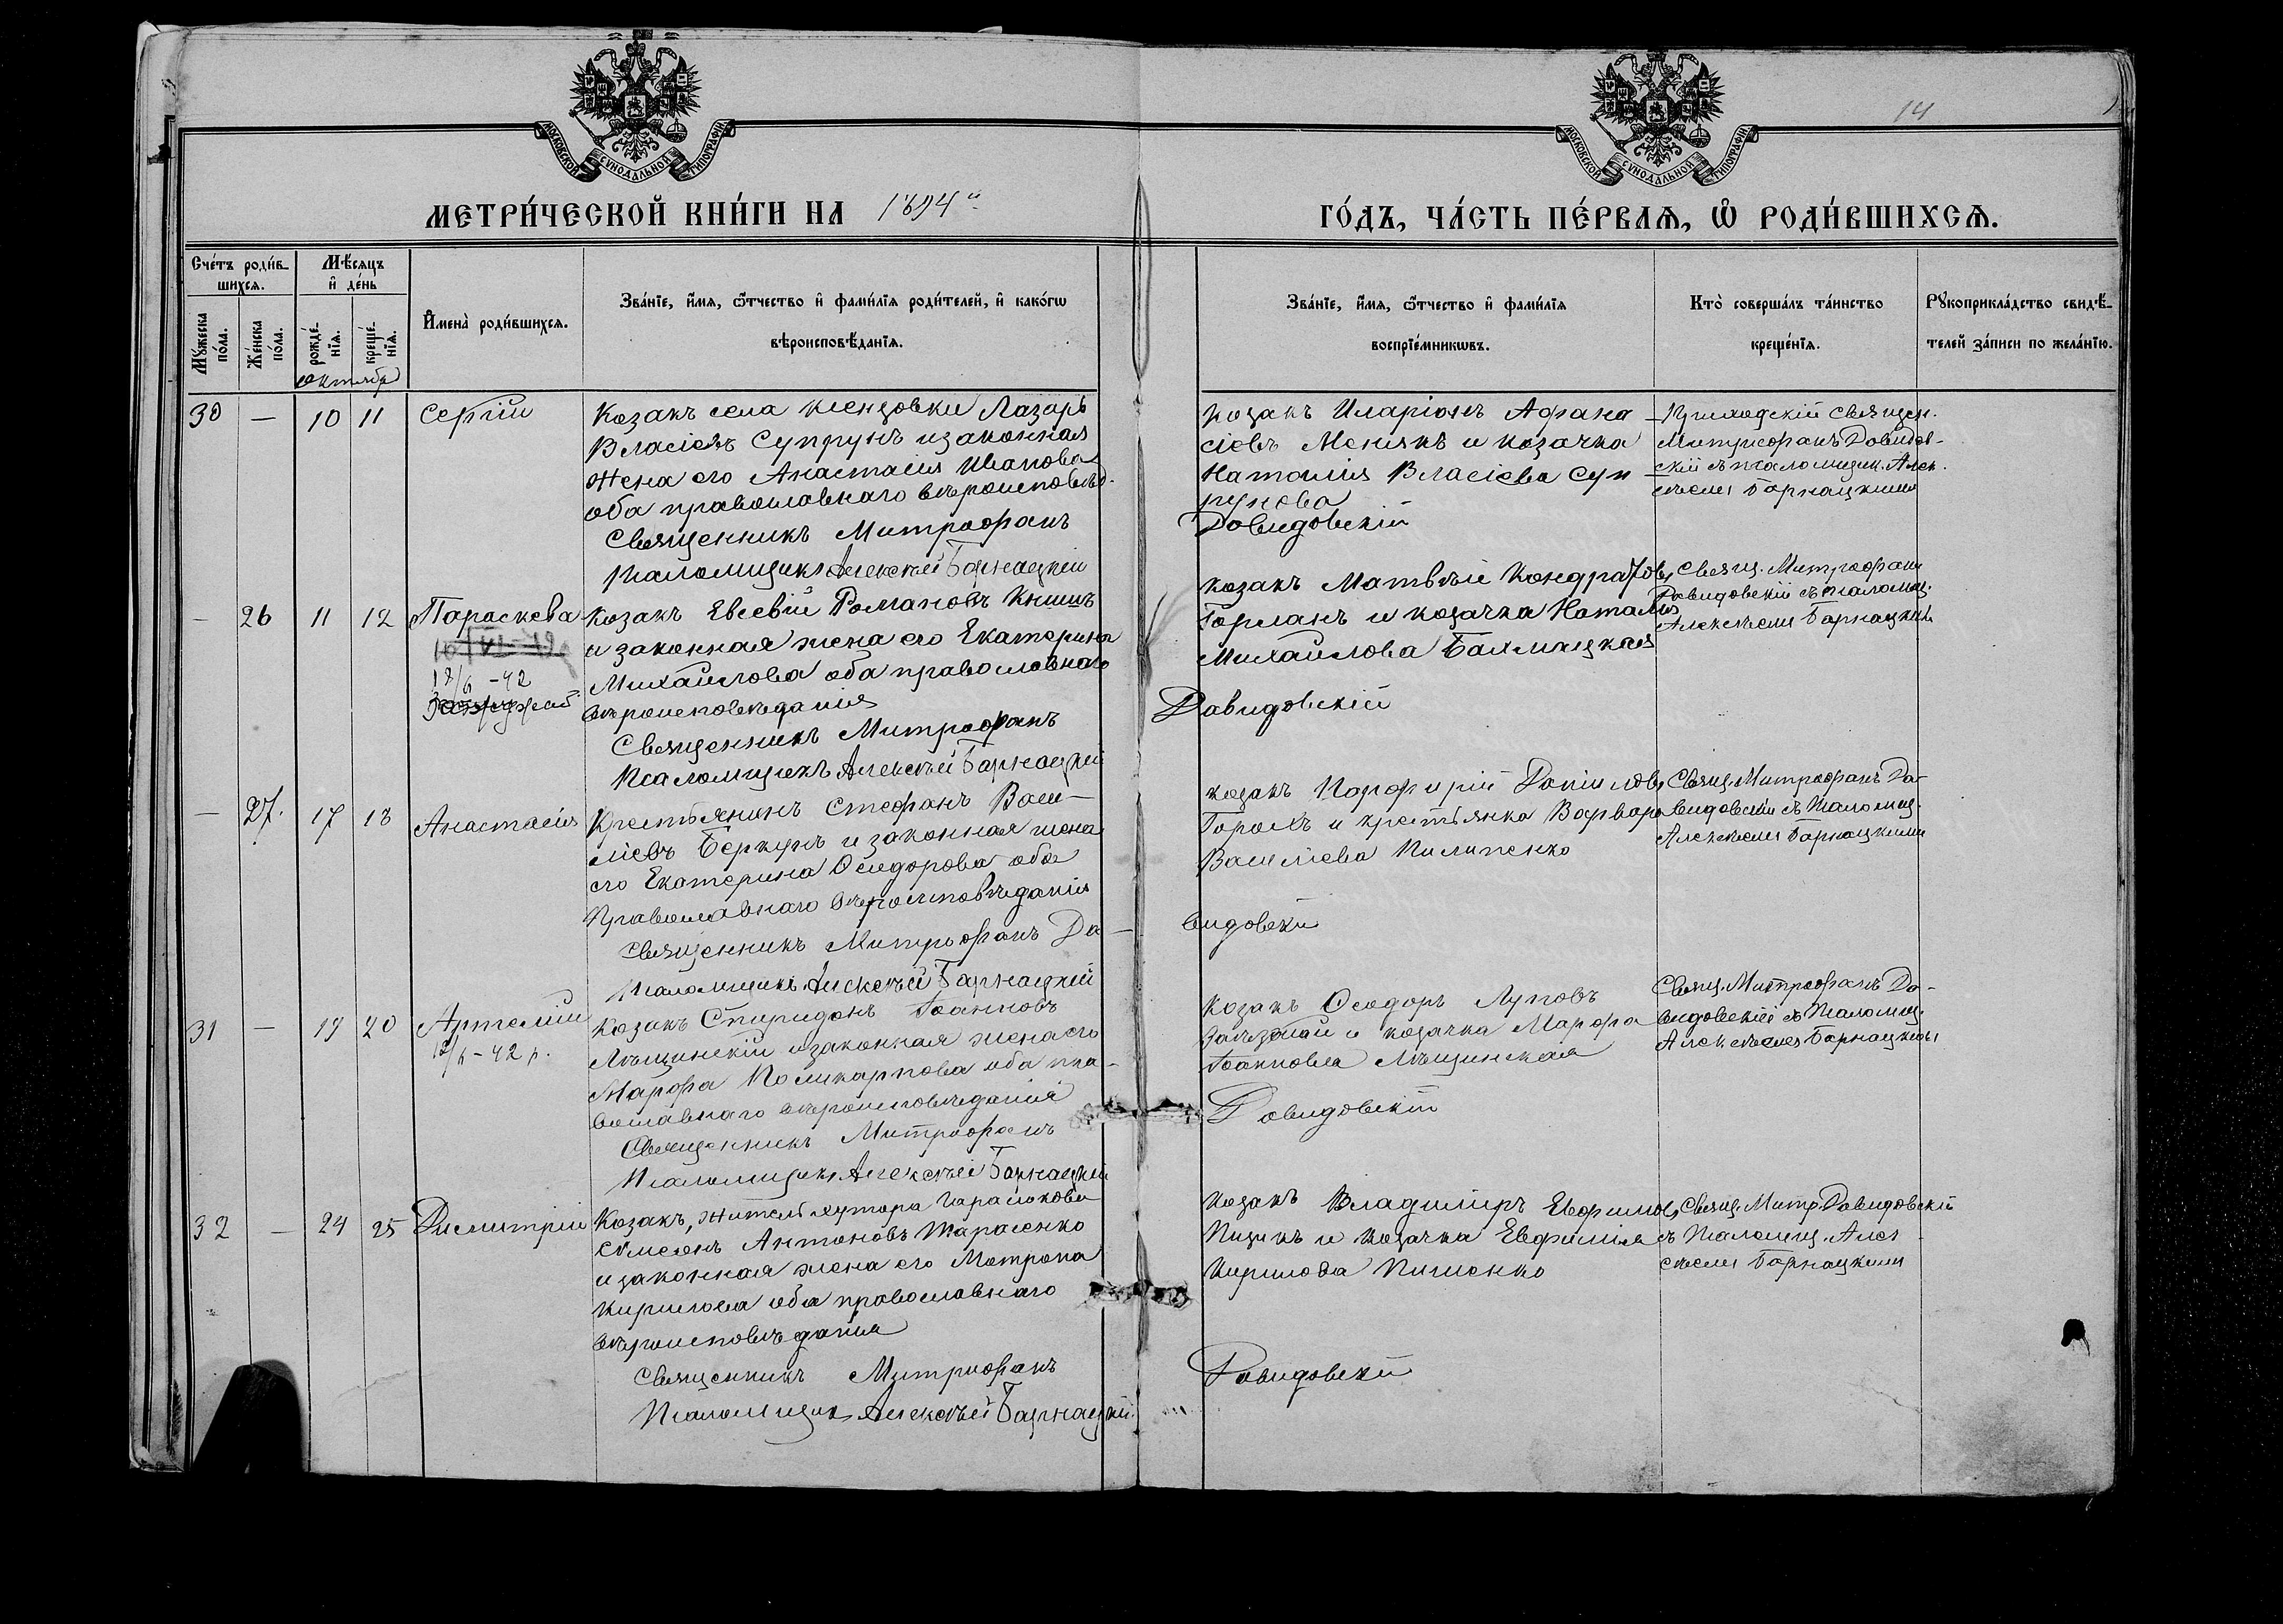 14
МОСКОВСКОЙ СѴНОДАЛЬНОЙ ТИПОГРАФІИ
МОСКОВСКОЙ СѴНОДАЛЬНОЙ ТИПОГРАФІИ
МЕТРИ́ЧЕСКОЙ КНИ́ГИ НА 1894й
ГО́ДЪ, ЧА́СТЬ ПЕ́РВАѦ, Ѡ҆ РОДИ́ВШИХСѦ.
Сче́тъ роди́в-
шихсѧ.
Мѣ́сѧцъ
и҆ де́нь
Мꙋ́жеска по́ла.
Же́нска по́ла.
рожде́-
нїѧ.
креще́-
нїѧ.
Октябрь
И҆мена̀ роди́вшихсѧ.
Зва́нїе, и҆́мѧ, ѻ҆́тчество и҆ фами́лїѧ роди́телей, и҆ како́гѡ
вѣроисповѣ́данїѧ.
Зва́нїе, и҆́мѧ, ѻ҆́тчество и҆ фами́лїѧ
воспрїе́мникѡвъ.
Кто̀ соверша́лъ та́инство
креще́нїѧ.
Рꙋкоприкла́дство свидѣ́-
телей за́писи по жела́нїю.
30 — 10 11 Сергій
Козакъ села Ксендовки Лазарь
Власіевъ Супрунъ и законная
жена его Анастасія Иванова
оба православнаго вѣроисповѣд.
Священникъ Митрофанъ
Псаломщикъ Алексѣй Барнацкій
Козакъ Иларіонъ Афана-
сіевъ Менякъ и козачка
Наталія Власіева Суп-
рунова
Давидовскій
Приходскій священ.
Митрофанъ Давидов-
скій съ псаломщик. Алек-
сѣемъ Барнацкимъ
— 26 11 12 Параскева
12/6 -42
Козакъ Евсевій Романовъ Кнышъ
и законная жена его Екатерина
Михайлова оба православнаго
вѣроисповѣданія
Священникъ Митрофанъ
Псаломщикъ Алексѣй Барнацкій
Козакъ Матвѣй Кондратовъ
Горланъ и козачка Наталія
Михайлова Бахмацкая
Давидовскій
Священ. Митрофанъ
Давидовскій съ псаломщ.
Алексѣемъ Барнацкимъ
— 27. 17 18 Анастасія
Крестьянинъ Стефанъ Васи-
ліевъ Беркунъ и законная жена
его Екатерина Ѳеодорова оба
Православнаго вѣроисповѣданія
Священникъ Митрофанъ Да-
Псаломщикъ Алексѣй Барнацкій
козакъ Порфирій Даниловъ
Горохъ и крестьянка Варвара
Василіева Пилипенко
видовскій
Священ. Митрофанъ Да-
видовскій съ псаломщ.
Алексѣемъ Барнацкимъ
31 — 19 20 Артемій
12/6 - 42 р.
Козакъ Спиридонъ Іоанновъ
Лѣщинскій и законная жена его
Марфа Поликарпова оба пра-
вославнаго вѣроисповѣданія
Священникъ Митрофанъ
Псаломщикъ Алексѣй Барнацкій
Козакъ Ѳеодоръ Луповъ
и козачка Марфа
Іоаннова Лѣщинская
Давидовскій
Священ. Митрофанъ Да-
видовскій съ псаломщ.
Алексѣемъ Барнацкимъ
32 — 24 25 Димитрій
Козакъ, житель хутора
Симеонъ Антоновъ Тарасенко
и законная жена его Матрона
Кирилова оба православнаго
вѣроисповѣданія
Священникъ Митрофанъ
Псаломщикъ Алексѣй Барнацкій.
Козакъ Владиміръ Евфимовъ
Пицикъ и козачка Евфимія
Кирилова Пишенко
Давидовскій
Священ. Митр. Давидовскій
съ псаломщ. Алек-
сѣемъ Барнацкимъ